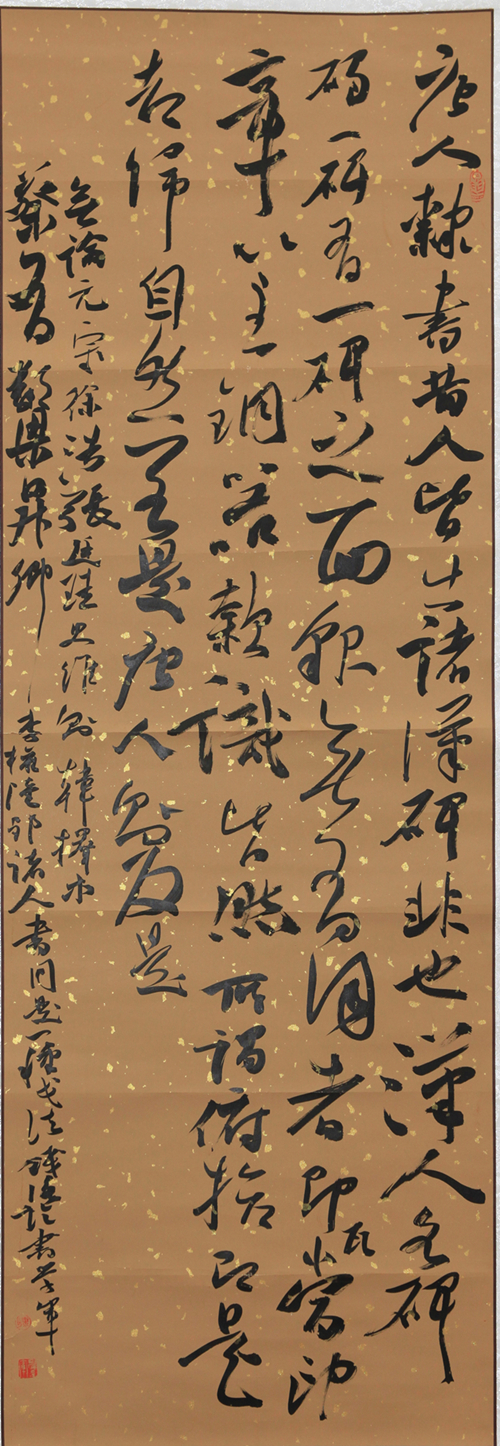 唐人隸書昔人皆出諸漢碑非也漢人各碑
碣一碑有一碑之面貌無有同者即瓦當印
章以至銅器款識皆然所謂俯拾即是
都歸自然一至是唐人則反是
無論元宗徐浩張廷珪史維則韓擇木
蔡有鄰梁昇卿李權陸郢諸人書同是一種戈法錢泳論書